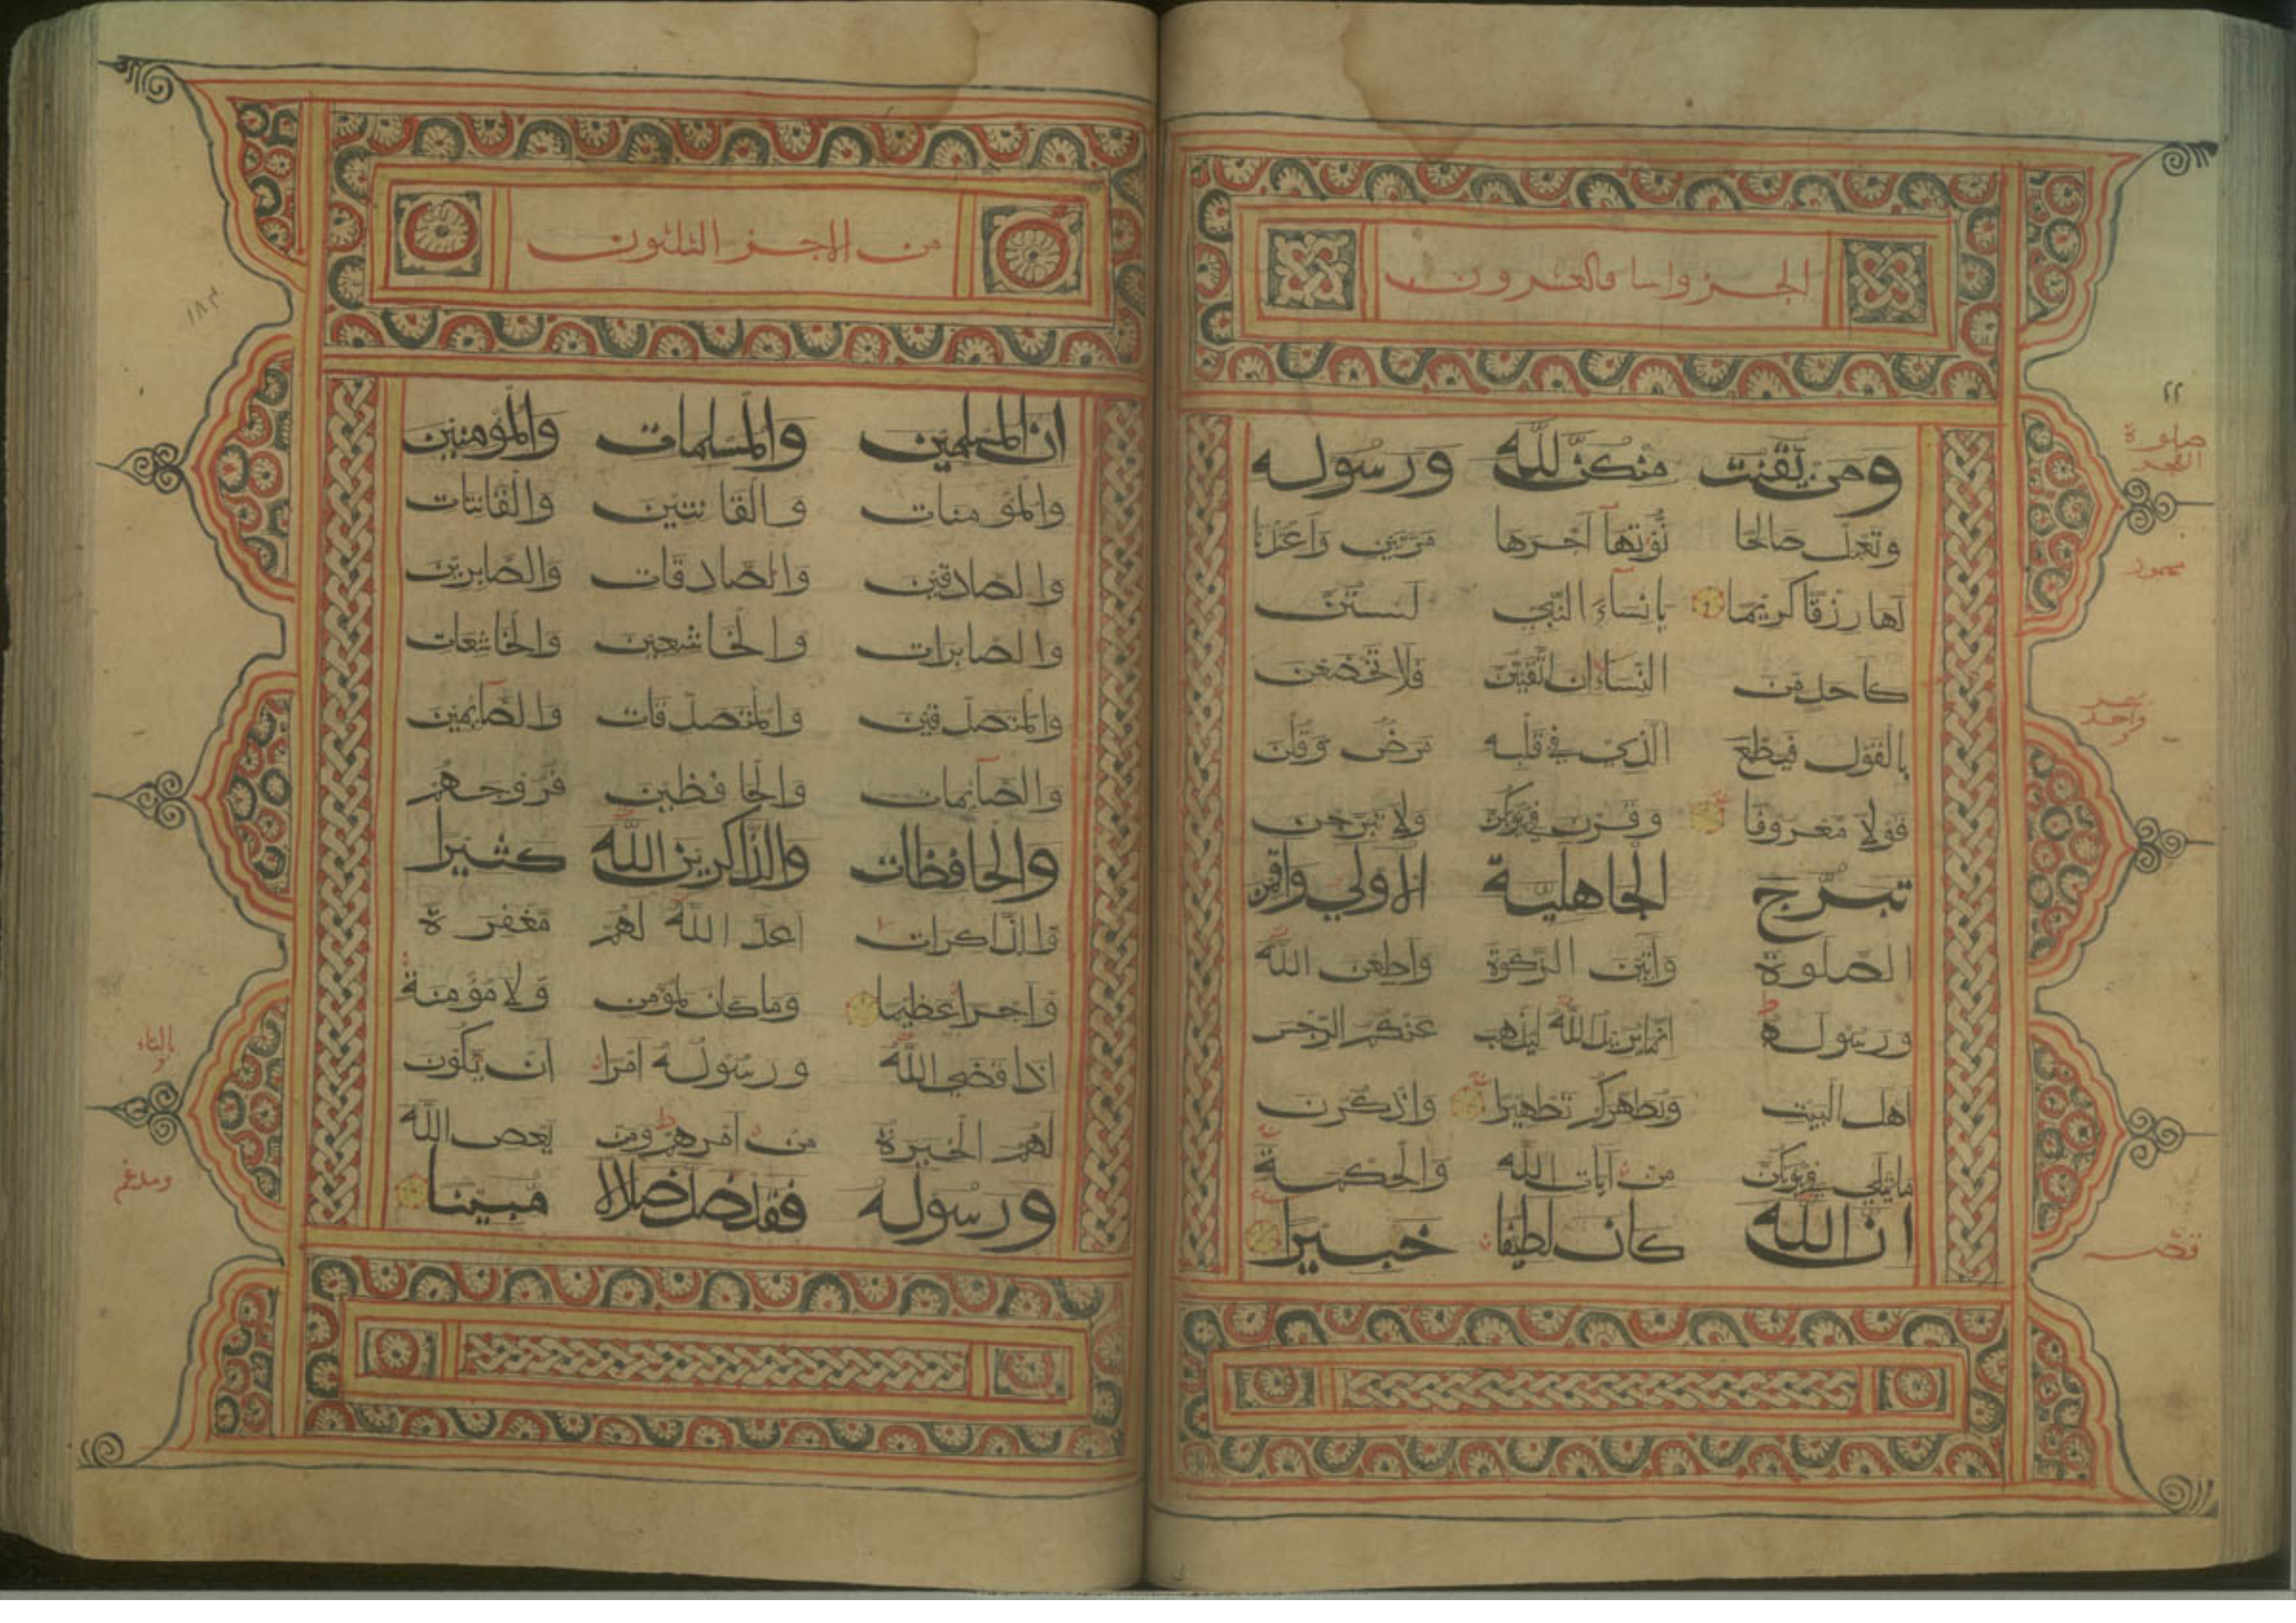 ومن يقنت منكن لله ورسوله
وتعمل صالحا نؤتهآ اجرها مرتين واعتدنا
لها رزقا كريما يانسآء النبي لستن
كاحد من النسآء ان اتقيتن فلا تخضعن
بالقول فيطمع الذي في قلبه مرض وقلن
قولا معروفا وقرن في بيوتكن ولا تبرجن
تبرج الجاهلية الاولي واقمن
الصلوة وآتين الزكوة واطعن الله
ورسوله انما يريد الله ليذهب عنكم الرجس
اهل البيت ويطهركم تطهيرا واذكرن
ما يتلي في بيوتكن من آيات الله والحكمة
ان الله كان لطيفا خبيرا
٢٢
صلوة
الفجر
واحد
من الاجز الثلثون
ان المسلمين والمسلمات والمؤمنين
والمؤمنات والقانتين والقانتات
والصادقين والصادقات والصابرين
والصابرات والخاشعين والخاشعات
والمتصدقين والمتصدقات والصآيمين
والصآيمات والحافظين فروجهم
والحافظات والذاكرين الله كثيرا
والذاكرات اعد الله لهم مغفرة
واجرا عظيما وما كان لمؤمن ولا مؤمنة
اذا قضي الله ورسوله امرا ان يكون
لهم الخيرة من امرهم ومن يعص الله
ورسوله فقد ضل ضلالا مبينا
بالتاء